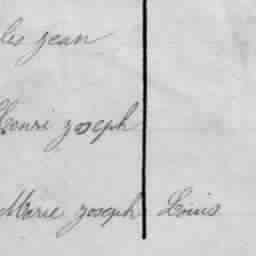 les jean
Henri joseph
Marie joseph Louis